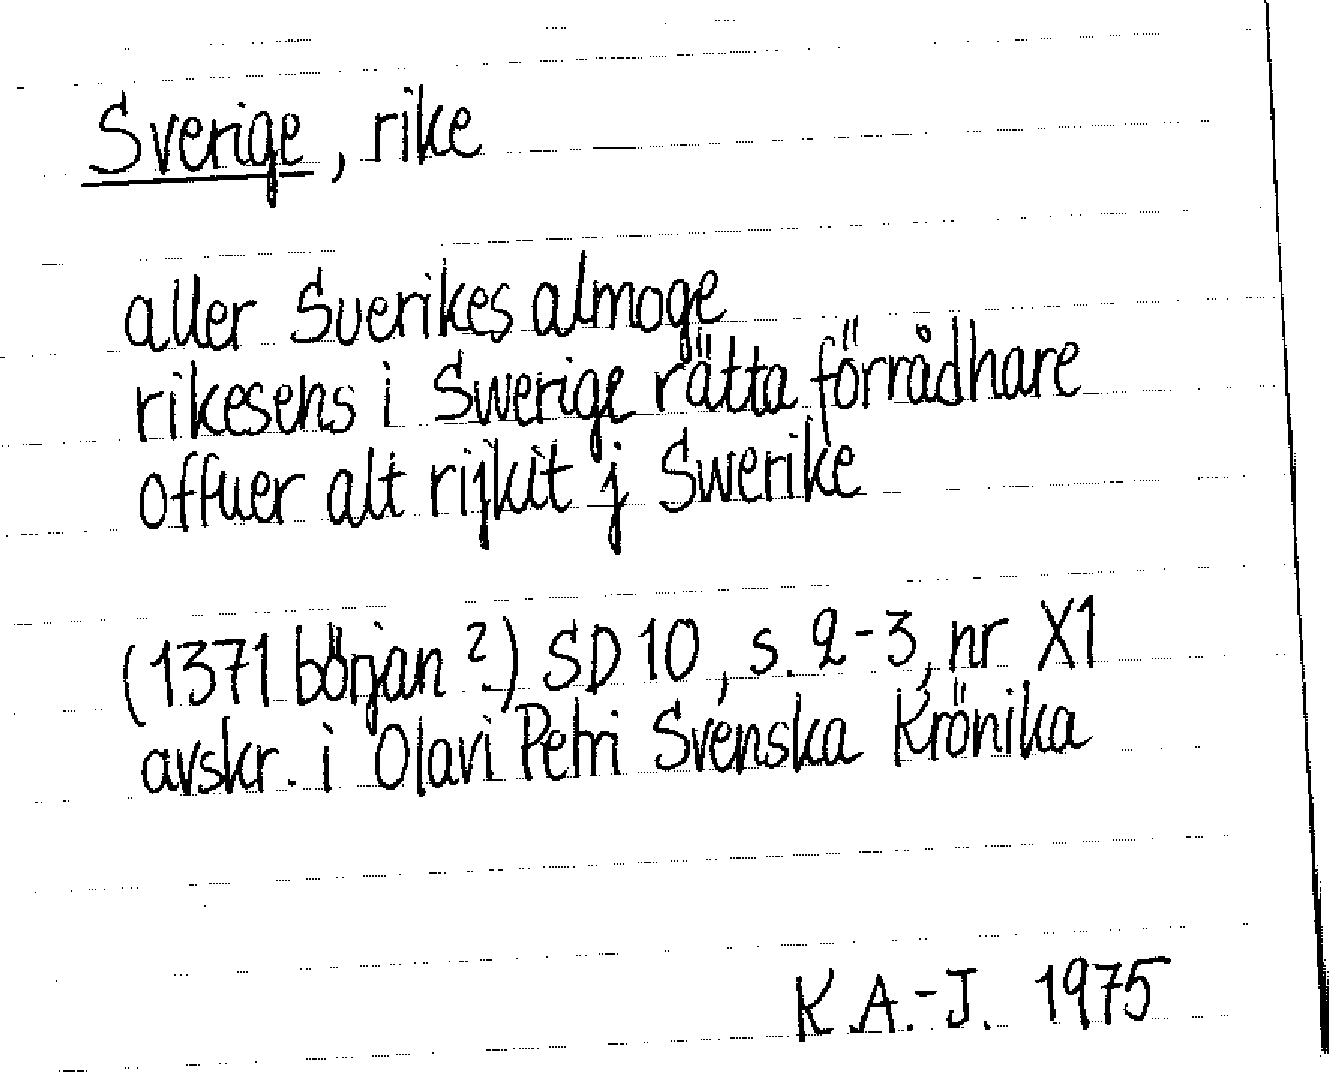 Sverige, rike
aller Suerikes almoge
rikesens i Swerige rätta förrådhare
offuer alt rijkit j Swerike
(1371 början ?) SD 10, s. 2-3, nr X1
avskr. i Olavi Petri Svenska Krönika
K.A.-J. 1975